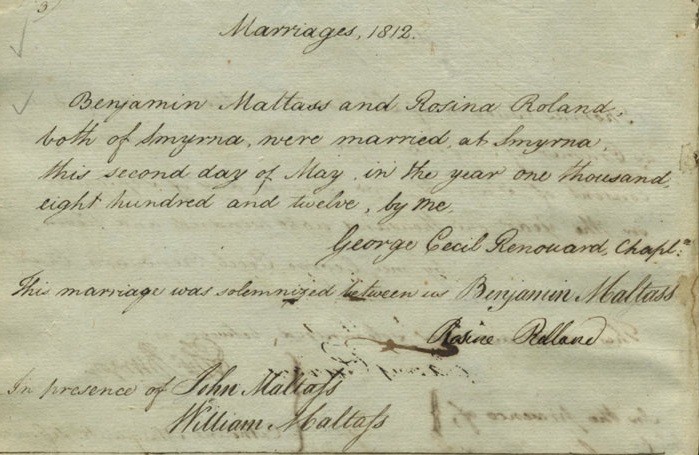 3
Marriages, 1812.
Benjamin Maltass and Rosina Roland,
both of Smyrna, were married, at Smyrna,
this second day of May, in the year one thousand,
eight hundred and twelve, by me,
George Cecil Renouard, Chapln:
This marriage was solemnized between us Benjamin Maltass
Rosine Rolland
In presence of John Maltaſs
William Maltaſs